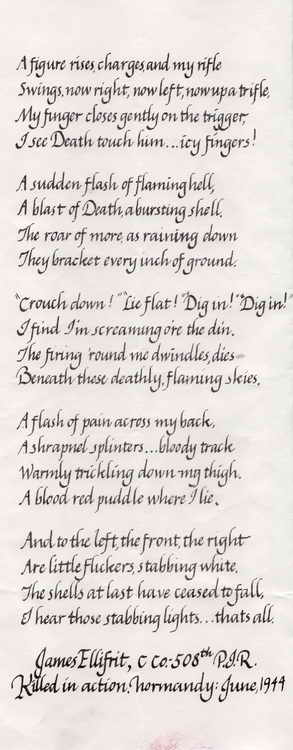 A figure rises, charges, and my rifle
Swings, now right, now left, now up a trifle.
My finger closes gently on the trigger,
I see Death touch him...icy fingers!
A sudden flash of flaming hell,
A blast of Death, a bursting shell.
The roar of more, as raining down
They bracket every inch of ground.
"Crouch down!" "Lie flat!" "Dig in!" "Dig in!"
I find I'm screaming o're the din.
The firing 'round me dwindles, dies
Beneath these deathly, flaming skies.
A flash of pain across my back,
A shrapnel splinters...bloody track
Warmly trickling down my thigh.
A blood red puddle where I lie.
And to the left, the front, the right
Are little flickers, stabbing white.
The shells at last have ceased to fall,
I hear those stabbing lights...thats all.
James Ellifrit, C Co: 508th P.I.R.
Killed in action: Normandy: June, 1944